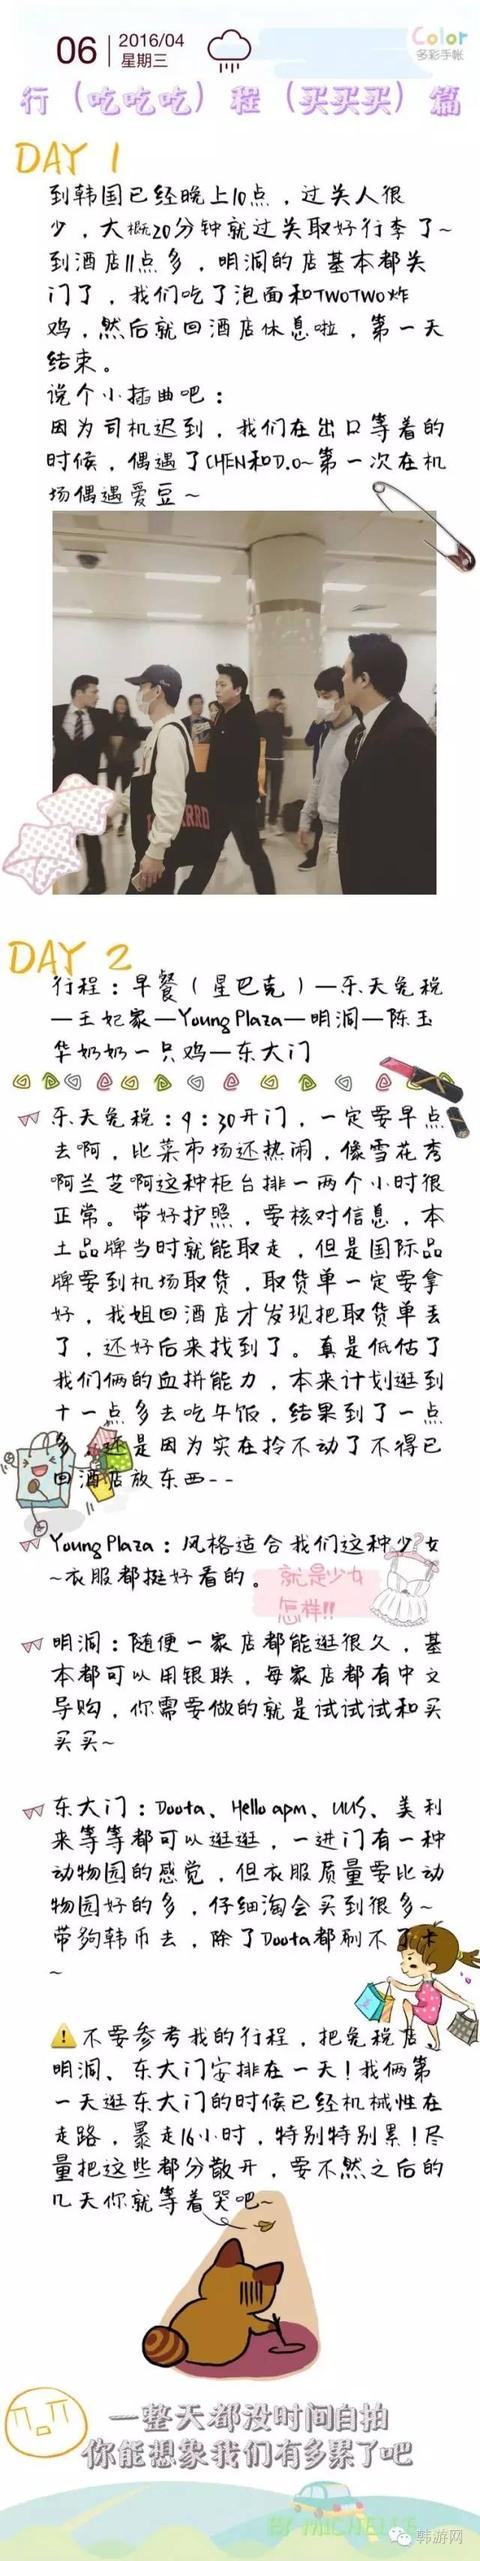 06
2016/04
星期三
Color
多彩手帐
行（吃吃吃）程（买买买）篇
DAY 1
到韩国已经晚上10点，过关人很
少，大概20分钟就过关取好行李了~
到酒店11点多，明洞的店基本都关
门了，我们吃了泡面和TWOTWO炸
鸡，然后就回酒店休息啦，第一天
结束。
说个小插曲吧：
因为司机迟到，我们在出口等着的
时候，偶遇了CHEN和D.O~第一次在机
场偶遇爱豆~
DAY 2
行程：早餐（星巴克）—乐天免税
—王妃家—Young Plaza—明洞—陈玉
华奶奶一只鸡—东大门
乐天免税：9：30开门，一定要早点
去啊，比菜市场还热闹，像雪花秀
啊兰芝啊这种柜台排一两个小时很
正常。带好护照，要核对信息，本
土品牌当时就能取走，但是国际品
牌要到机场取货，取货单一定要拿
好，我姐回酒店才发现把取货单丢
了，还好后来找到了。真是低估了
我们俩的血拼能力，本来计划逛到
十一点多去吃午饭，结果到了一点
多，还是因为实在拎不动了不得已
回酒店放东西--
Young Plaza：风格适合我们这种少女
~衣服都挺好看的。
就是少女
怎样!!
明洞：随便一家店都能逛很久，基
本都可以用银联，每家店都有中文
导购，你需要做的就是试试试和买
买买~
东大门：Doota、Hello apm、UUS、美利
来等等都可以逛逛，一进门有一种
动物园的感觉，但衣服质量要比动
物园好的多，仔细淘会买到很多~
带够韩币去，除了Doota都刷不了卡
~
不要参考我的行程，把免税店、
明洞、东大门安排在一天！我俩第
一天逛东大门的时候已经机械性在
走路，暴走16小时，特别特别累！尽
量把这些都分散开，要不然之后的
几天你就等着哭吧~
一整天都没时间自拍
你能想象我们有多累了吧
BY MICHELLE
韩游网